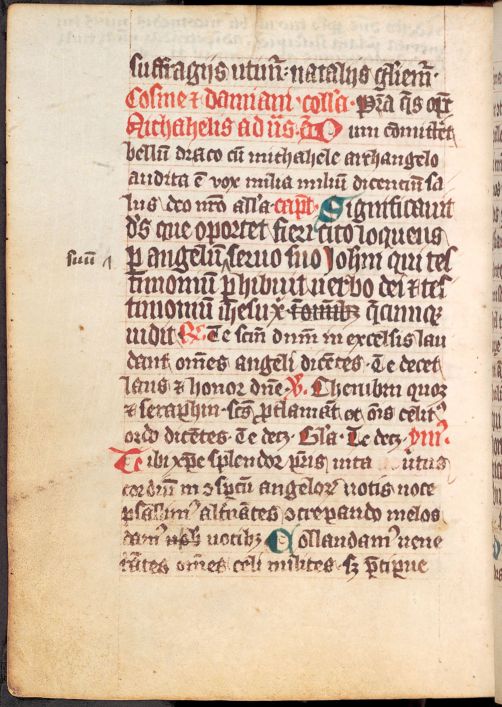 suffragijs utim᷑ · natalijs gl'iem᷑ ·
Cosme ⁊ damiani · coll'a · Pr̄a q̄s op̄t
Michahelis ad v̄s · a᷑ Dum cōmitt'et
bellū draco cū michahele archangelo
audita ē vox milia miliū dicenciū sa
lus deo nr̄o all'a · capt᷑ · Significauit
d's que oportet fieri cito loquens
suū
ꝑ angelū seruo suo Johi᷑ qui tes
timoniū ꝑhibuit uerbo dei ⁊ tes
timoniū ih'esu x᷑ in oīnib; q̄cumq;
uidit R᷑ Te scm̄ dnm̄ in excelsis lau
dant om̄es angeli dicētes · Te decet
laus ⁊ honor dn̄e · V᷑. Cherubin quoq;
⁊ seraphin · sc̄s ꝓclamāt et om̄s celic᷒
ordo dicētes · Te dec; · Gl'a · Te dec; · ym᷑ ·
Tibi xp̄e splendor pr̄is uita uirtus
cordiū in ɔspc̄tu angeloꝝ uotis uoce
psallim᷒ alt'nātes ɔcrepando melos
dam᷒ uocib; Collaudam᷒ uene
rātes om̄es celi milites · s; p̄cipue